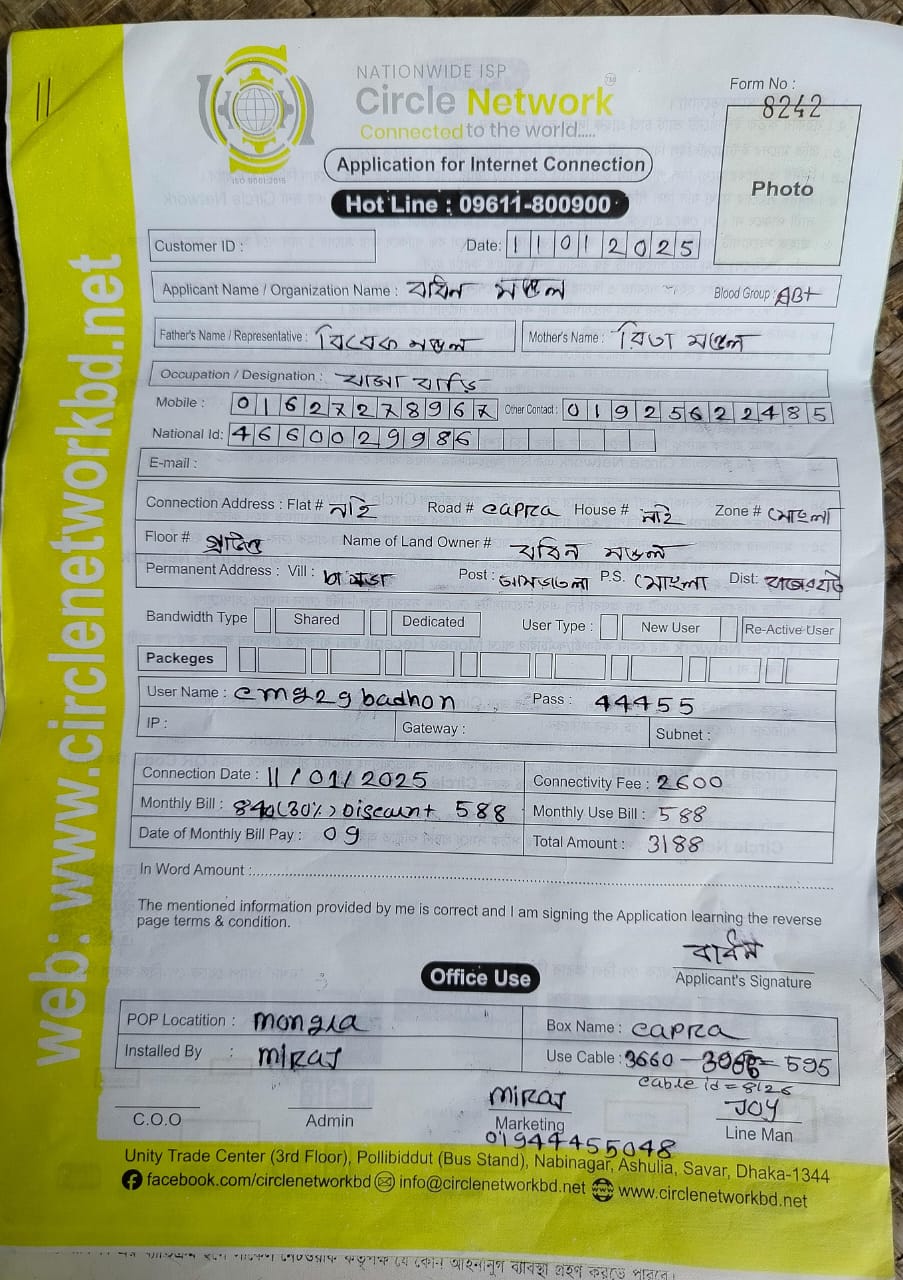 NATIONWIDE ISP
Circle Network
Connected to the world.....
ISO 9001:2015
Form No :
8242
Photo
Application for Internet Connection
Hot Line : 09611-800900
Customer ID :
Date: 11012025
Applicant Name / Organization Name : বাধন মন্ডল Blood Group : AB+
Father's Name / Representative : বিবেক মন্ডল Mother's Name : রিতা মন্ডল
Occupation / Designation :
Mobile : 01627278967 Other Contact : 01925622485
National Id: 4660029986
E-mail :
Connection Address : Flat # নাই Road # capra House # নাই Zone # মোংলা
Floor # Name of Land Owner # বাধন মন্ডল
Permanent Address : Vill : Post : P.S. মোংলা Dist: বাগেরহাট
Bandwidth Type Shared Dedicated User Type : New User Re-Active User
Packeges
User Name : cmg29badhon Pass : 44455
IP : Gateway : Subnet :
Connection Date : 11/01/2025 Connectivity Fee : 2600
Monthly Bill : 840(30%) Discount 588 Monthly Use Bill : 588
Date of Monthly Bill Pay : 09 Total Amount : 3188
In Word Amount :
The mentioned information provided by me is correct and I am signing the Application learning the reverse
page terms & condition.
বাধন
Applicant's Signature
Office Use
POP Locatition : mongla Box Name : capra
Installed By : miraj Use Cable : 3660 - = 595
cable id = 8126
miraj JOY
C.O.O Admin Marketing Line Man
01944455048
Unity Trade Center (3rd Floor), Pollibiddut (Bus Stand), Nabinagar, Ashulia, Savar, Dhaka-1344
facebook.com/circlenetworkbd info@circlenetworkbd.net www.circlenetworkbd.net
web: www.circlenetworkbd.net
যে কোন আইনানুগ ব্যাবস্থা গ্রহণ করতে পারবে।